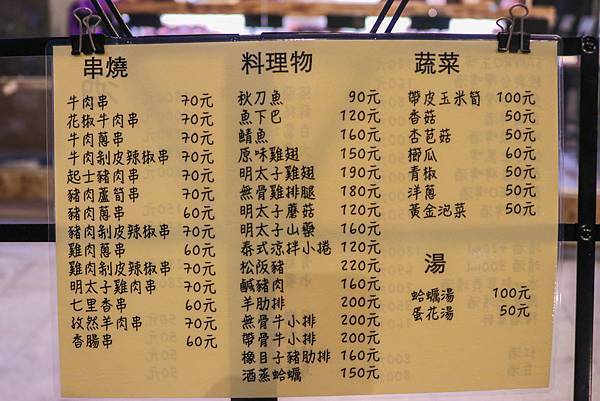 串燒
牛肉串 70元
花椒牛肉串 70元
牛肉蔥串 70元
牛肉剝皮辣椒串 70元
起士豬肉串 70元
豬肉蘆筍串 70元
豬肉蔥串 60元
豬肉剝皮辣椒串 70元
雞肉蔥串 60元
雞肉剝皮辣椒串 70元
明太子雞肉串 70元
七里香串 60元
孜然羊肉串 70元
香腸串 60元
料理物
秋刀魚 90元
魚下巴 120元
鯖魚 160元
原味雞翅 150元
明太子雞翅 190元
無骨雞排腿 180元
明太子蘑菇 120元
明太子山藥 160元
泰式涼拌小捲 120元
松阪豬 220元
鹹豬肉 160元
羊肋排 200元
無骨牛小排 200元
帶骨牛小排 200元
橡目子豬肋排 160元
酒蒸蛤蠣 150元
蔬菜
帶皮玉米筍 100元
香菇 50元
杏苞菇 50元
櫛瓜 60元
青椒 50元
洋蔥 50元
黃金泡菜 50元
湯
蛤蠣湯 100元
蛋花湯 50元